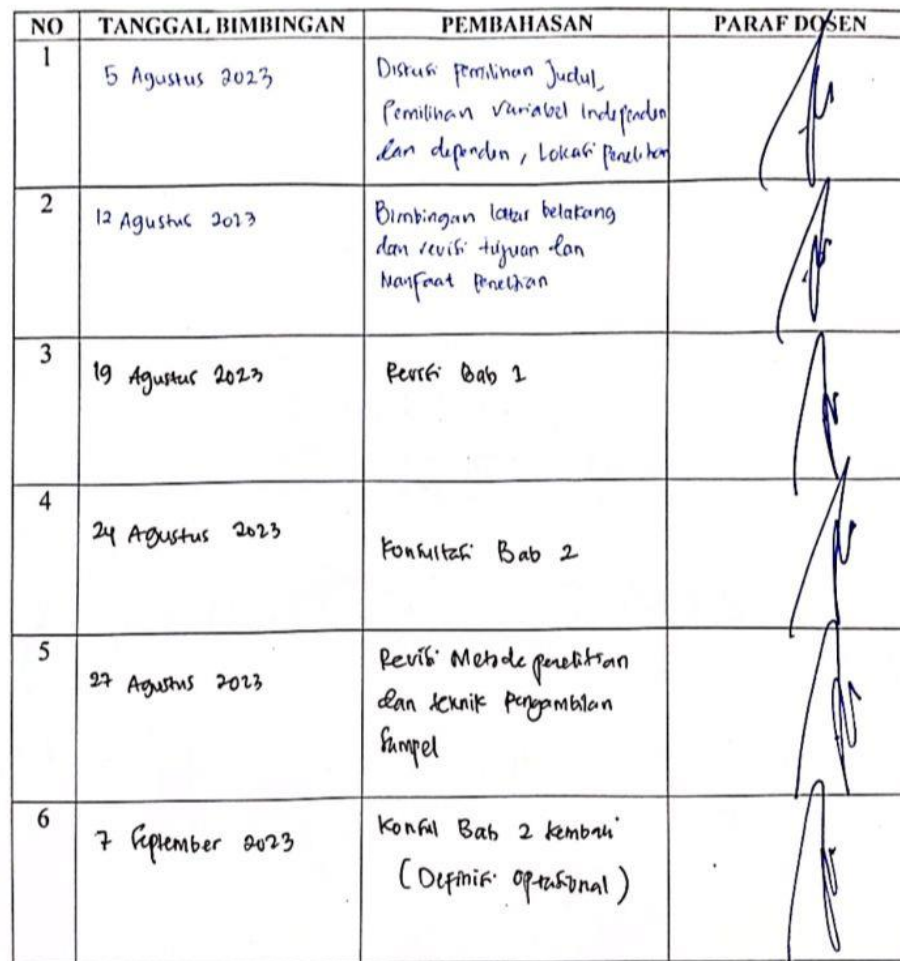 NO TANGGAL BIMBINGAN PEMBAHASAN PARAF DOSEN
1
5 Agustus 2023
Diskusi Pemilihan Judul,
Pemilihan Variabel Independen
dan dependen, Lokasi Penelitian
2
12 Agustus 2023
Bimbingan latar belakang
dan revisi tujuan dan
Manfaat Penelitian
3
19 Agustus 2023
Revisi Bab 1
4
24 Agustus 2023
Konsultasi Bab 2
5
27 Agustus 2023
Revisi Metode penelitian
dan teknik Pengambilan
Sampel
6
7 September 2023
Konsul Bab 2 kembali
(Definisi Oprasional)